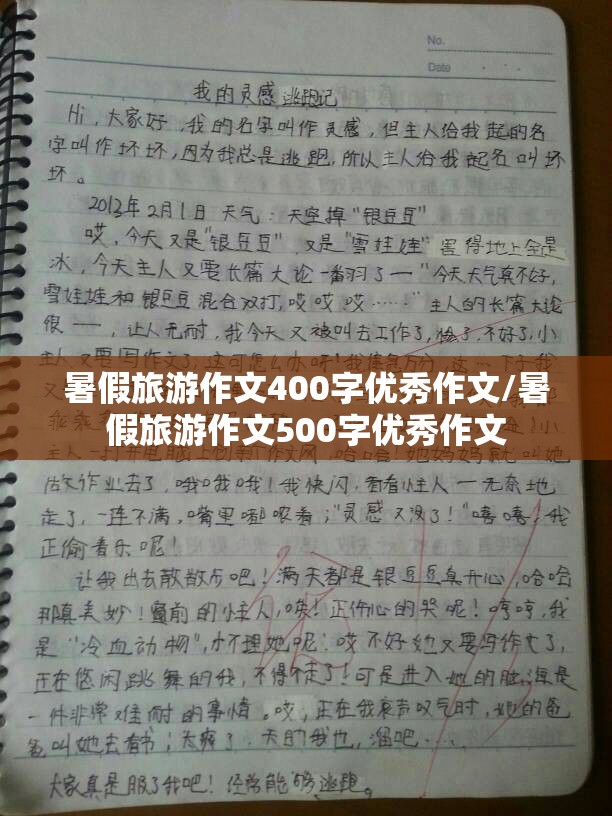 No.
Date
我的灵感逃跑记
Hi,大家好,我的名字叫作灵感,但主人给我起的名
字叫作坏坏,因为我总是逃跑,所以主人给我起名叫坏
坏。
2013年2月1日 天气:天空掉“银豆豆”
哎,今天又是“银豆豆”,又是“雪娃娃”害得地上全是
冰,今天主人又要长篇大论一番羽了——“今天天气真不好,
雪娃娃和银豆豆混合双打,哎哎哎……”主人的长篇大论
很——,让人无耐,我今天又被叫去工作了,惨了,不好了,小
主人又要写作文了,这可怎么办呀!我
暑假旅游作文400字优秀作文/暑
假旅游作文500字优秀作文
主人一打开电脑上创新作文网,哈哈!她妈妈就叫她
做作业去了,哦哦哦!我快闪,看看主人一无奈地
走了,一连不满,嘴里嘟哝着;“灵感又没了!”嘻嘻,我
正偷着乐呢!
让我出去散散步吧!满天都是银豆豆真开心,哈哈
那真美妙!窗前的主人,唉!正伤心的哭呢!哼哼,我
是“冷血动物”,才不理她呢!哎不好她又要写作文了,
正在悠闲跳舞的我,不得不走了!可是进入她的脑海是
一件非常难耐的事情。哎,正在我哀声叹气时,她的爸
爸叫她去看书;太爽了,天助我也,溜吧……
大家真是服了我吧!经常能够逃跑。